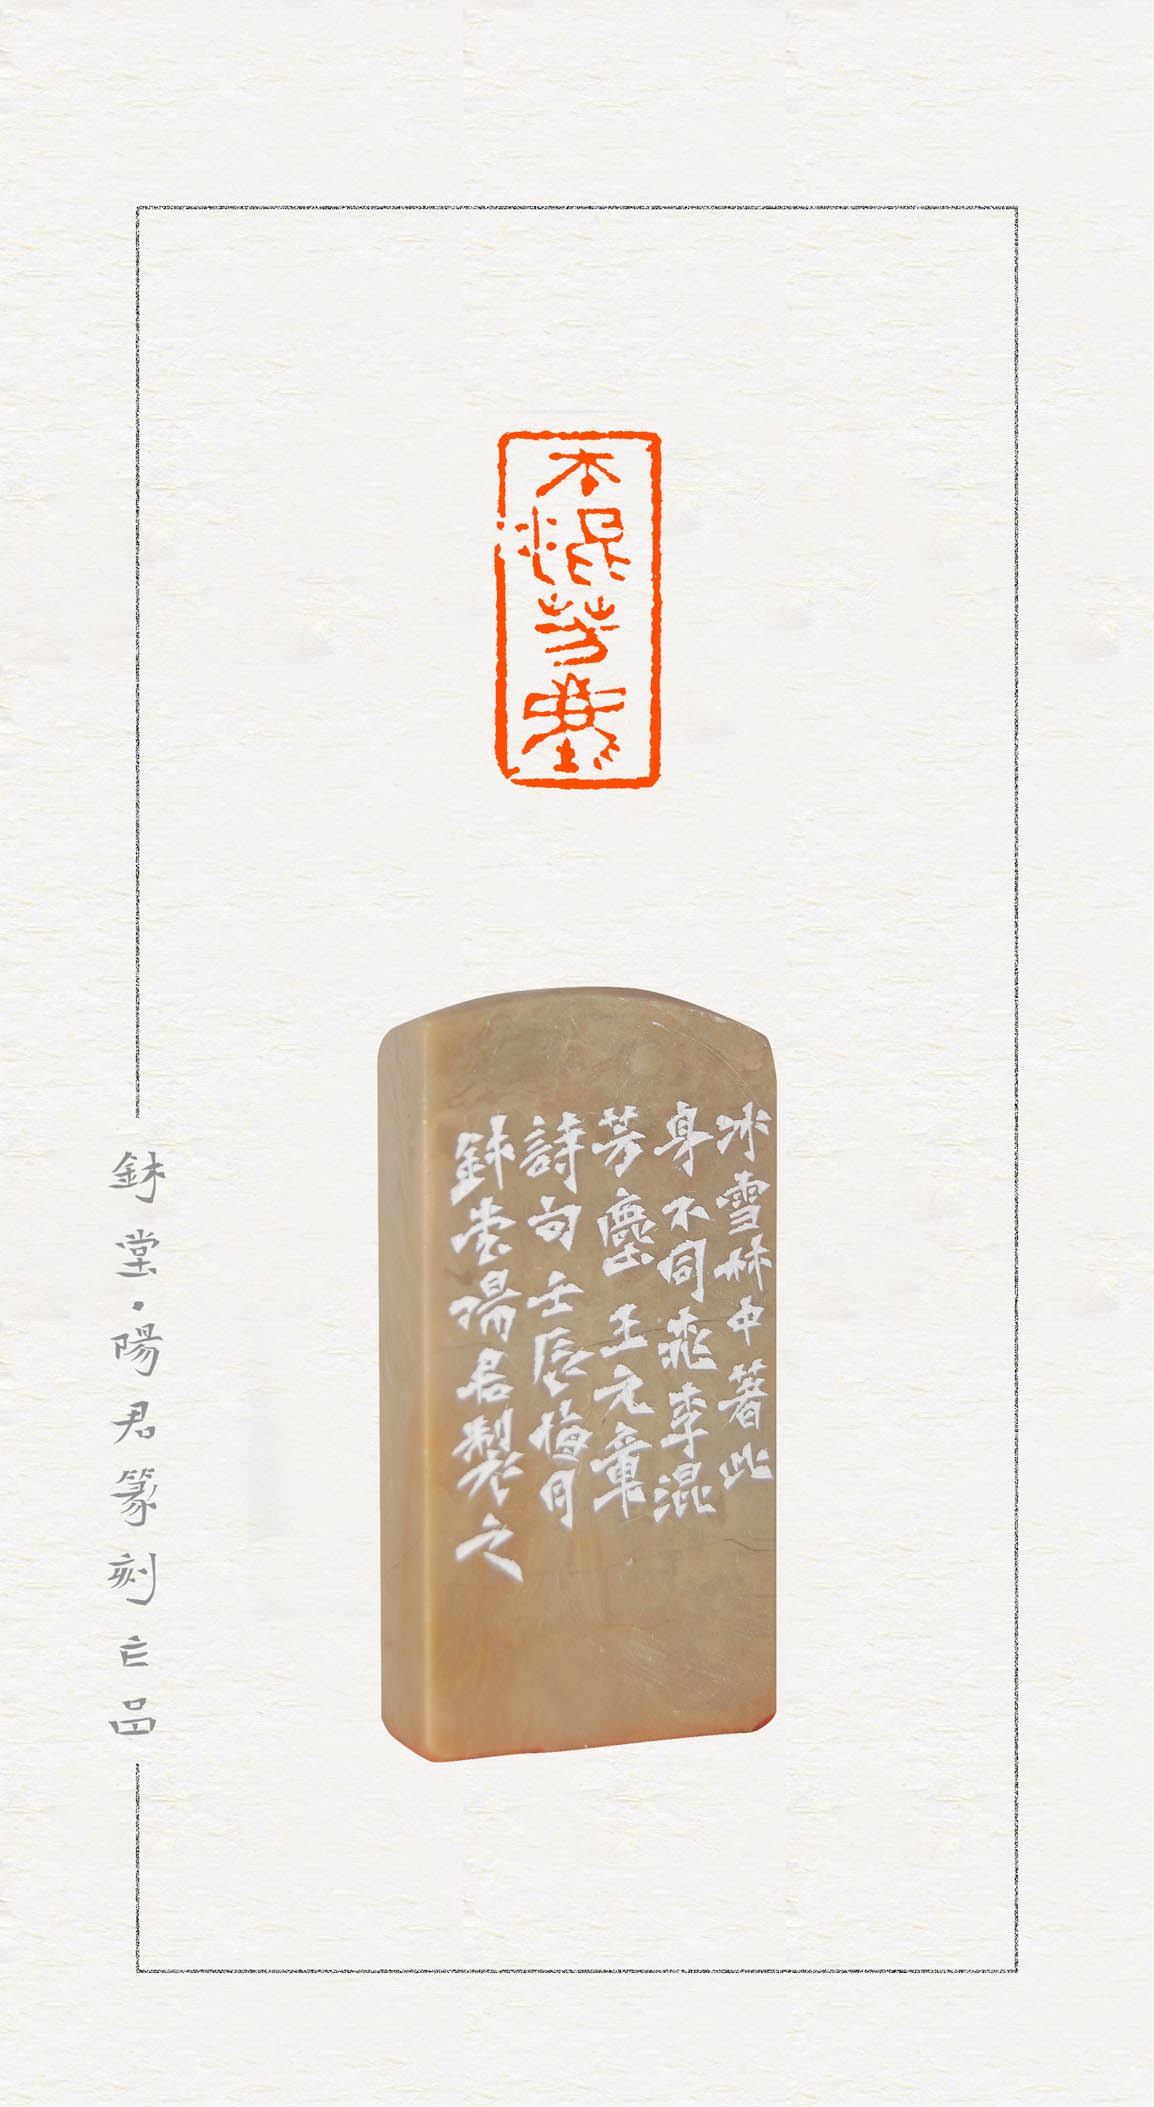 不混芳塵
冰雪林中著此
身不同桃李混
芳塵王元章
詩句壬辰梅月
鉢堂陽君製之
鉢堂·陽君篆刻亡品